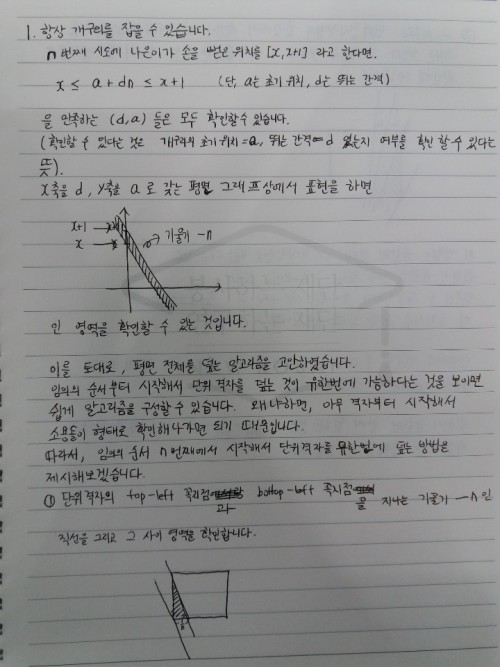 1. 항상 개구리를 잡을 수 있습니다.
n 번째 시도에 나은이가 손을 뻗은 위치를 [x, x+1] 라고 한다면,
x ≤ a + dn ≤ x+1 (단, a는 초기 위치, d는 뛰는 간격)
을 만족하는 (d, a) 들은 모두 확인할 수 있습니다.
(확인할 수 있다는 것은 개구리의 초기 위치 = a, 뛰는 간격 = d 였는지 여부를 확인 할 수 있다는
뜻).
X축을 d, Y축을 a 로 갖는 평면 그래프상에서 표현을 하면
x+1
x
기울기 -n
인 영역을 확인할 수 있는 것입니다.
이를 토대로, 평면 전체를 덮는 알고리즘을 고안하였습니다.
임의의 순서부터 시작해서 단위 격자를 덮는 것이 유한번에 가능하다는 것을 보이면
쉽게 알고리즘을 구성할 수 있습니다. 왜냐하면, 아무 격자부터 시작해서
소용돌이 형태로 확인해나가면 되기 때문입니다.
따라서, 임의의 순서 n 번째에서 시작해서 단위격자를 유한번에 덮는 방법을
제시해보겠습니다.
① 단위격자의 top-left 꼭지점과 bottom-left 꼭지점을 지나는 기울기 -n 인
직선을 그리고 그 사이 영역을 확인합니다.